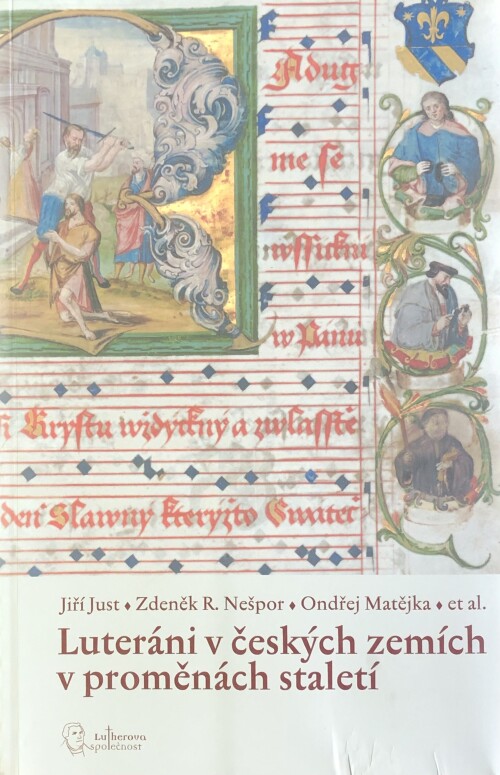 Radug
me se
wssickni
w Panu
Krystu wzdyckny a zwlasstě
den Slawny kteryzto Cwiteč
Jiří Just ♦ Zdeněk R. Nešpor ♦ Ondřej Matějka ♦ et al.
Luteráni v českých zemích
v proměnách staletí
Lutherova
společnost